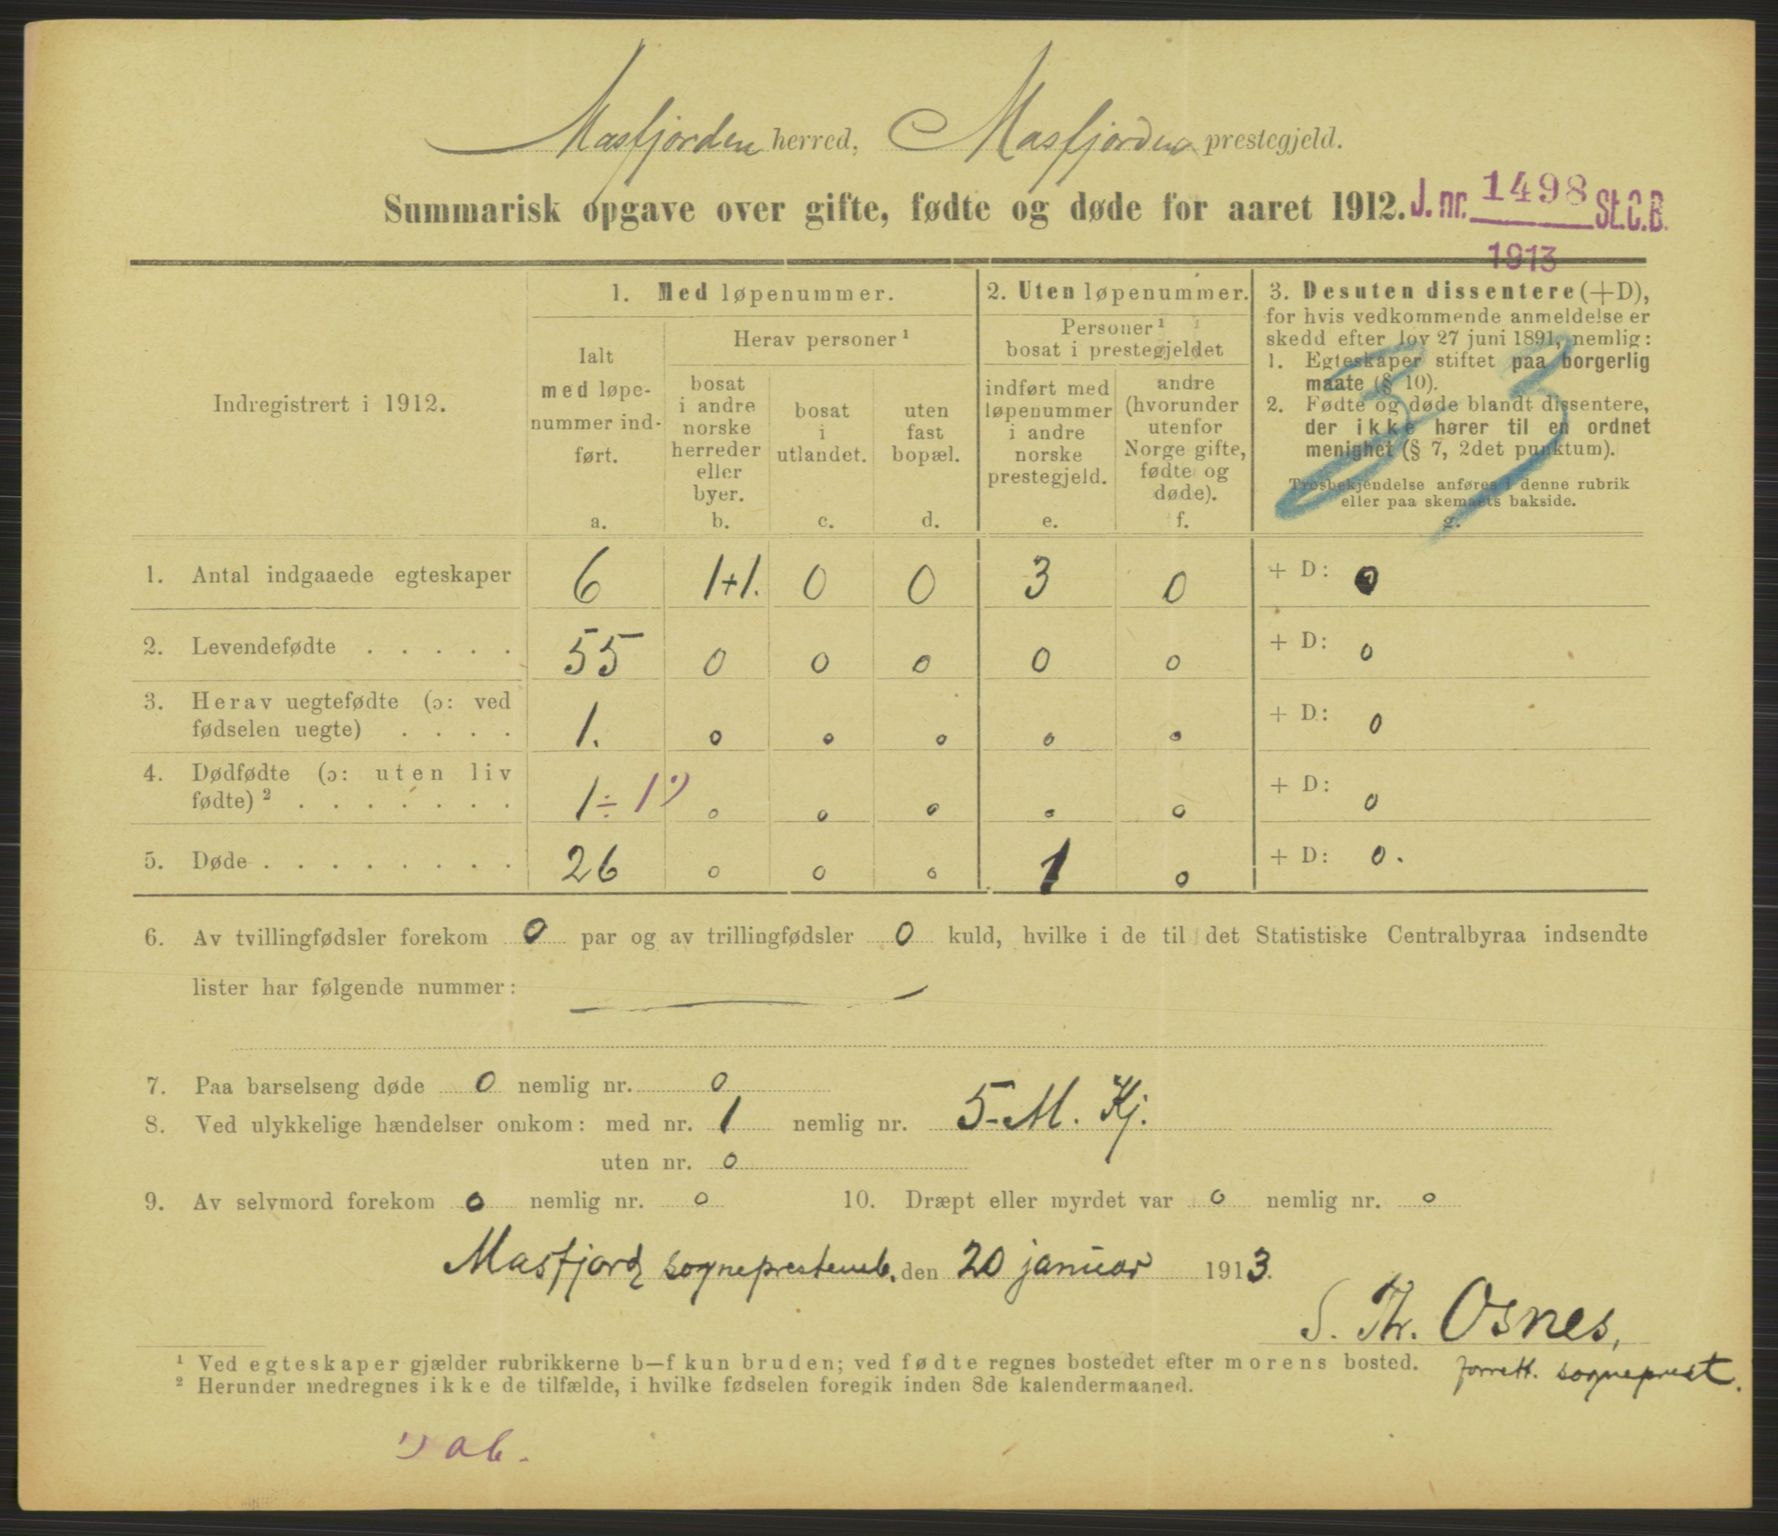 Masfjorden herred, Masfjorden prestegjeld.
Summarisk opgave over gifte, fødte og døde for aaret 1912. J. nr. 1498 St.C.B.
1913
Indregistrert i 1912.
1. Med løpenummer.
Ialt
med løpe-
nummer ind-
ført.
a.
Herav personer ¹
bosat
i andre
norske
herreder
eller
byer.
b.
bosat
i
utlandet.
c.
uten
fast
bopæl.
d.
2. Uten løpenummer.
Personer ¹
bosat i prestegjeldet
indført med
løpenummer
i andre
norske
prestegjeld.
e.
andre
(hvorunder
utenfor
Norge gifte,
fødte og
døde).
f.
3. Desuten dissentere (+D),
for hvis vedkommende anmeldelse er
skedd efter lov 27 juni 1891, nemlig:
1. Egteskaper stiftet paa borgerlig
maate (§ 10).
2. Fødte og døde blandt dissentere,
der ikke hører til en ordnet
menighet (§ 7, 2det punktum).
Trosbekjendelse anføres i denne rubrik
eller paa skemaets bakside.
g.
1. Antal indgaaede egteskaper 6 1+1. 0 0 3 0 + D: 0
2. Levendefødte . . . . . 55 0 0 0 0 0 + D: 0
3. Herav uegtefødte (ɔ: ved
fødselen uegte) . . . . 1. 0 0 0 0 0 + D: 0
4. Dødfødte (ɔ: uten liv
fødte) ² . . . . . . . 1 ÷ 1 ¹) 0 0 0 0 0 + D: 0
5. Døde . . . . . . . . 26 0 0 0 1 0 + D: 0.
6. Av tvillingfødsler forekom 0 par og av trillingfødsler 0 kuld, hvilke i de til det Statistiske Centralbyraa indsendte
lister har følgende nummer:
7. Paa barselseng døde 0 nemlig nr. 0
8. Ved ulykkelige hændelser omkom: med nr. 1 nemlig nr. 5-M. Kj.
uten nr. 0
9. Av selvmord forekom 0 nemlig nr. 0 10. Dræpt eller myrdet var 0 nemlig nr. 0
Masfjord sogneprestemb., den 20 januar 1913.
S. Thr. Osnes,
sogneprest.
¹ Ved egteskaper gjælder rubrikkerne b—f kun bruden; ved fødte regnes bostedet efter morens bosted.
² Herunder medregnes ikke de tilfælde, i hvilke fødselen foregik inden 8de kalendermaaned.
¹) ab.